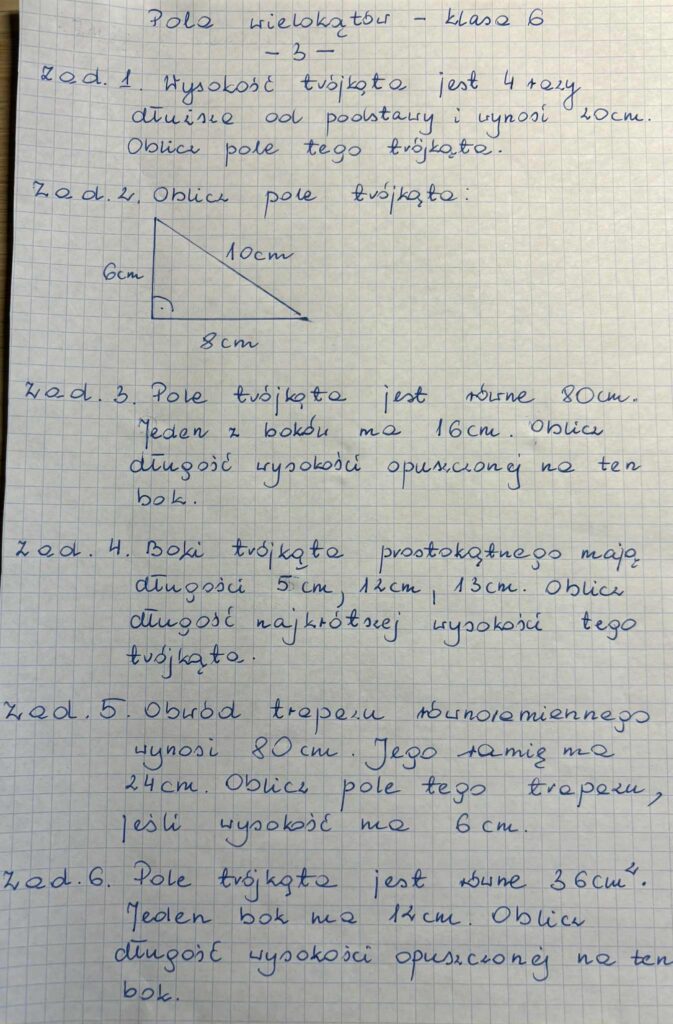 Pola wielokątów - klasa 6
- 3 -
Zad. 1. Wysokość trójkąta jest 4 razy
dłuższa od podstawy i wynosi 20cm.
Oblicz pole tego trójkąta.
Zad. 2. Oblicz pole trójkąta:
10cm
6cm
8cm
Zad. 3. Pole trójkąta jest równe 80cm.
Jeden z boków ma 16cm. Oblicz
długość wysokości opuszczonej na ten
bok.
Zad. 4. Boki trójkąta prostokątnego mają
długości 5cm, 12cm, 13cm. Oblicz
długość najkrótszej wysokości tego
trójkąta.
Zad. 5. Obwód trapezu równoramiennego
wynosi 80cm. Jego ramię ma
24cm. Oblicz pole tego trapezu,
jeśli wysokość ma 6 cm.
Zad. 6. Pole trójkąta jest równe 36cm².
Jeden bok ma 12cm. Oblicz
długość wysokości opuszczonej na ten
bok.